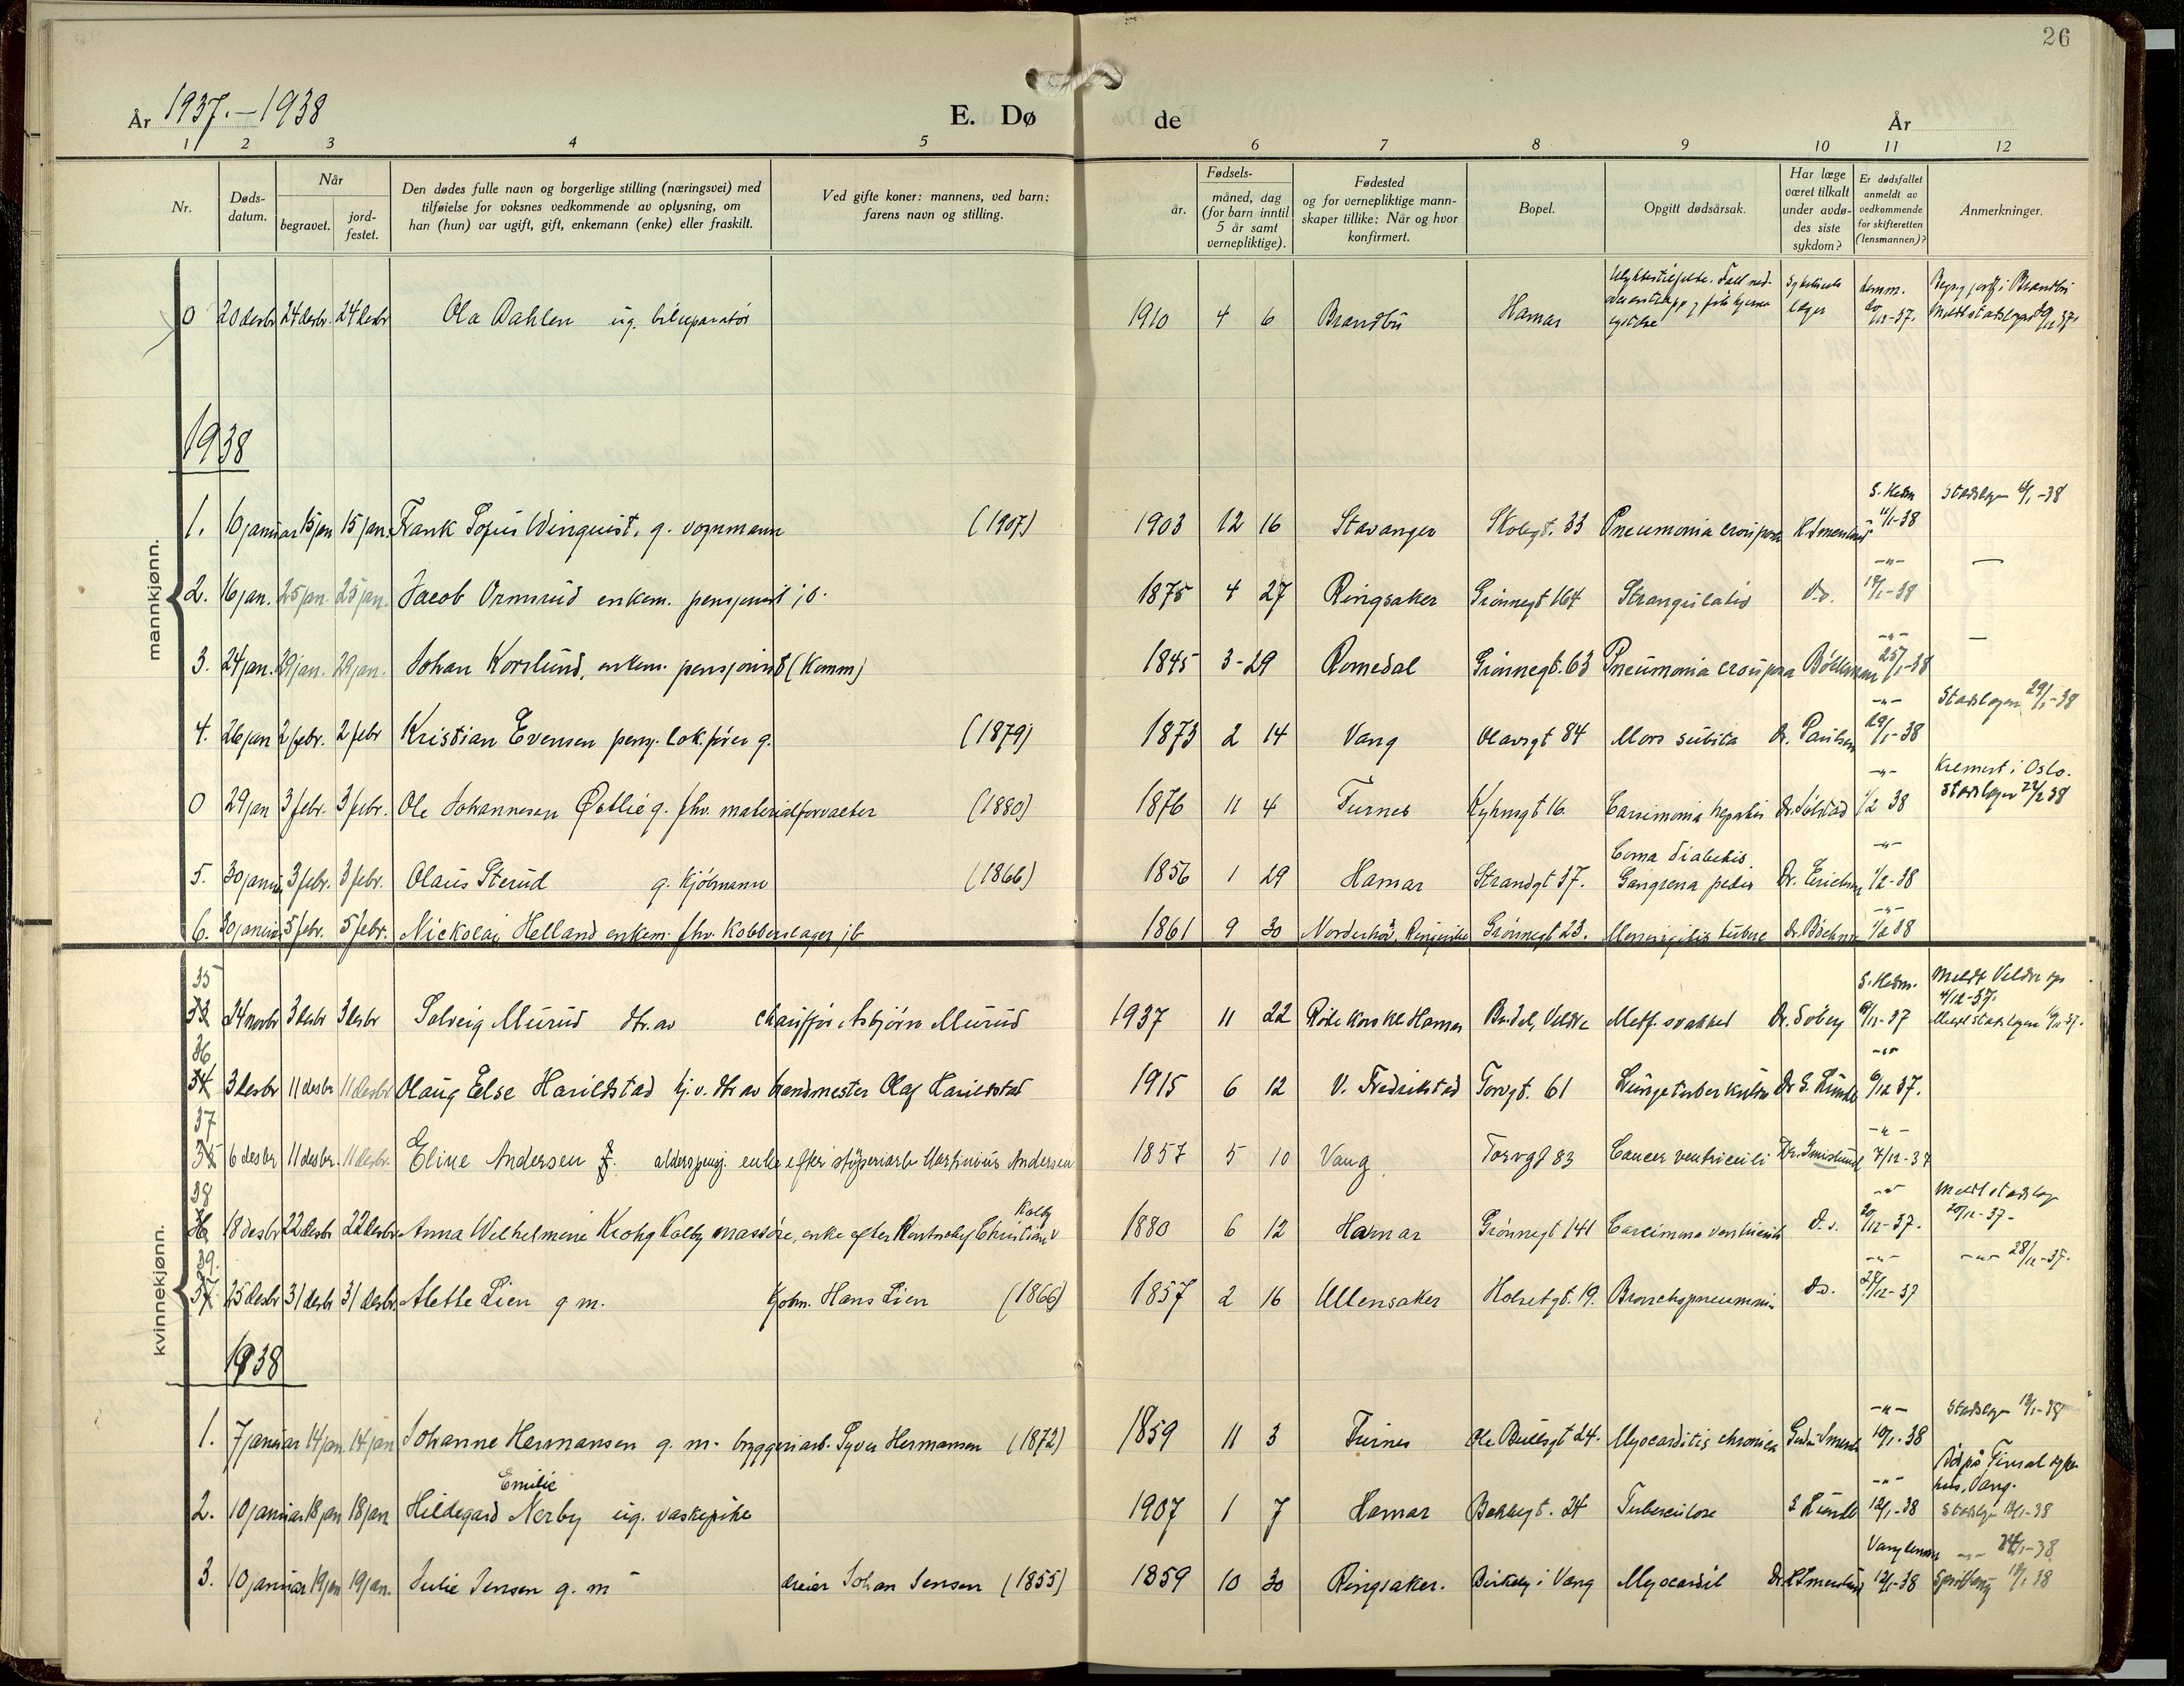 26
År 1937.-1938 E. Dø de År
1 2 3 4 5 6 7 8 9 10 11 12
Nr. Døds-datum. Når begravet. jord-festet. Den dødes fulle navn og borgerlige stilling (næringsvei) med tilføielse for voksnes vedkommende av oplysning, om han (hun) var ugift, gift, enkemann (enke) eller fraskilt. Ved gifte koner: mannens, ved barn: farens navn og stilling. Fødsels- år. måned, dag (for barn inntil 5 år samt vernepliktige). Fødested og for vernepliktige mann-skaper tillike: Når og hvor konfirmert. Bopel. Opgitt dødsårsak. Har læge været tilkalt under avdø-des siste sykdom? Er dødsfallet anmeldt av vedkommende for skifteretten (lensmannen)? Anmerkninger.
mannkjønn.
0 20 desbr 24 desbr. 24 desbr Ola Dahlen ug. bilreparatør 1910 4 6 Brandbu Hamar
1938
1. 10 januar 15 jan 15 jan. Frank Sofus Winquist, g. vognmann (1907) 1903 12 16 Stavanger Skolegt. 33 Pneumonia crouposa S. Hedm 11/1-38
2. 16 jan. 25 jan. 25 jan. Jacob Ormsrud enkem. pensjonist j.b. 1875 4 27 Ringsaker Grønnegt 164 Strangulatio d.o. -"- 18/1-38 —
3. 24 jan. 29 jan. 29 jan. Johan Korslund, enkem. pensjonist (Komm) 1845 3-29 Romedal Grønnegt. 63 Pneumonia crouposa -"- 25/1-38 —
4. 26 jan 2 febr. 2 febr Kristian Evensen pensj. lok.fører g. (1879) 1873 2 14 Vang Olavsgt 84 Mors subita Dr. Paulsen -"- 29/1-38 Stadslegen 29/1-38
0 29 jan 3 febr. 3 febr. Ole Johannesen Østlie g. fhv. materialforvalter (1880) 1876 11 4 Furnes Kyhnsgt 16. Dr. Sølstad -"- 1/2 38 Kremert i Oslo.
5. 30 januar 3 febr. 3 febr. Olaus Sterud g. kjøbmann (1866) 1856 1 29 Hamar Strandgt 37. Coma diabetis. Gangrena pedis -"- 1/2-38
6. 30 januar 5 febr. 5 febr. Nickolai Helland enkem. fhv. kobberslager jb 1861 9 30 Norderhov, Ringerike Grønnegt 23. -"- 1/2 38
kvinnekjønn.
35 33 24 novbr 3 desbr 3 desbr Solveig Murud dtr. av chauffør Asbjørn Murud 1937 11 22 Røde kors kl Hamar Medf. svakhet S. Hedm. 6/12-37 Meldt Veldre 4/12-37.
36 34 3 desbr 11 desbr 11 desbr Olaug Else Harildstad hj.v. dtr. av brandmester Olaf Harildstad 1915 6 12 V. Fredrikstad Torvgt. 61 Lungetuberkulose -"- 6/12 37.
37 35 6 desbr 11 desbr. 11 desbr. Eline Andersen alderspensj. enke efter støperiarb. Martinius Andersen 1857 5 10 Vang Torvgt 83 Cancer ventriculi -"- 7/12-37
38 18 desbr 22 desbr 22 desbr Anna Wilhelmine Krohg Kolby massøse, enke efter Christian Kolby 1880 6 12 Hamar Grønnegt 141 d.o. -"- 20/12-37. 20/12-37-
39. 37 25 desbr 31 desbr 31 desbr. Alette Lien g m. kjøbm. Hans Lien (1866) 1857 2 16 Ullensaker Holsetgt. 19. Bronchopneumonia d.o. -"- 28/12-37 -"- 28/12-37.
1938
1. 7 januar 14 jan. 14 jan Johanne Hermansen g. m. bryggeriarb. Syver Hermansen (1872) 1859 11 3 Furnes Ole Bullsgt 24. Myocarditis chronica -"- 10/1-38
2. 10 januar 18 jan 18 jan Hildegard Emilie Nerby ug. vaskepike 1907 1 7 Hamar Bekkegt. 24 Tuberculose -"- 12/1-38
3. 10 januar 19 jan 19 jan. Julie Jensen g. m dreier Johan Jensen (1855) 1859 10 30 Ringsaker. i Vang Myocardit 12/1-38